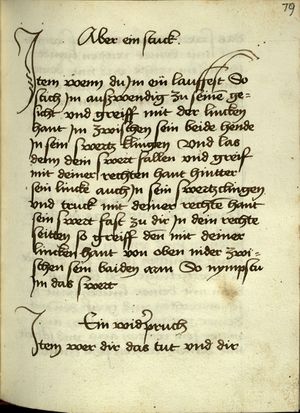 79
Aber ein stuck.
Item wenn du im ein lauffest So
stich im außwendig zu seine ge-
sicht und greiff mit der lincken
hant im zwischen sein beide hende
In sein swertz klingen Und las
denn dein swert fallen und greif
mit deiner rechten hant hinter
sein lincke auch in sein swertzclingen
und truck mit deiner rechte hant
sein swert fast zu dir In dein rechte
seitten so greiff den mit deiner
lincken hant von oben nider zwi-
schen sein baiden arm So nympstu
Im das swert
Ein widerpruch
Item wer dir das tut und dir